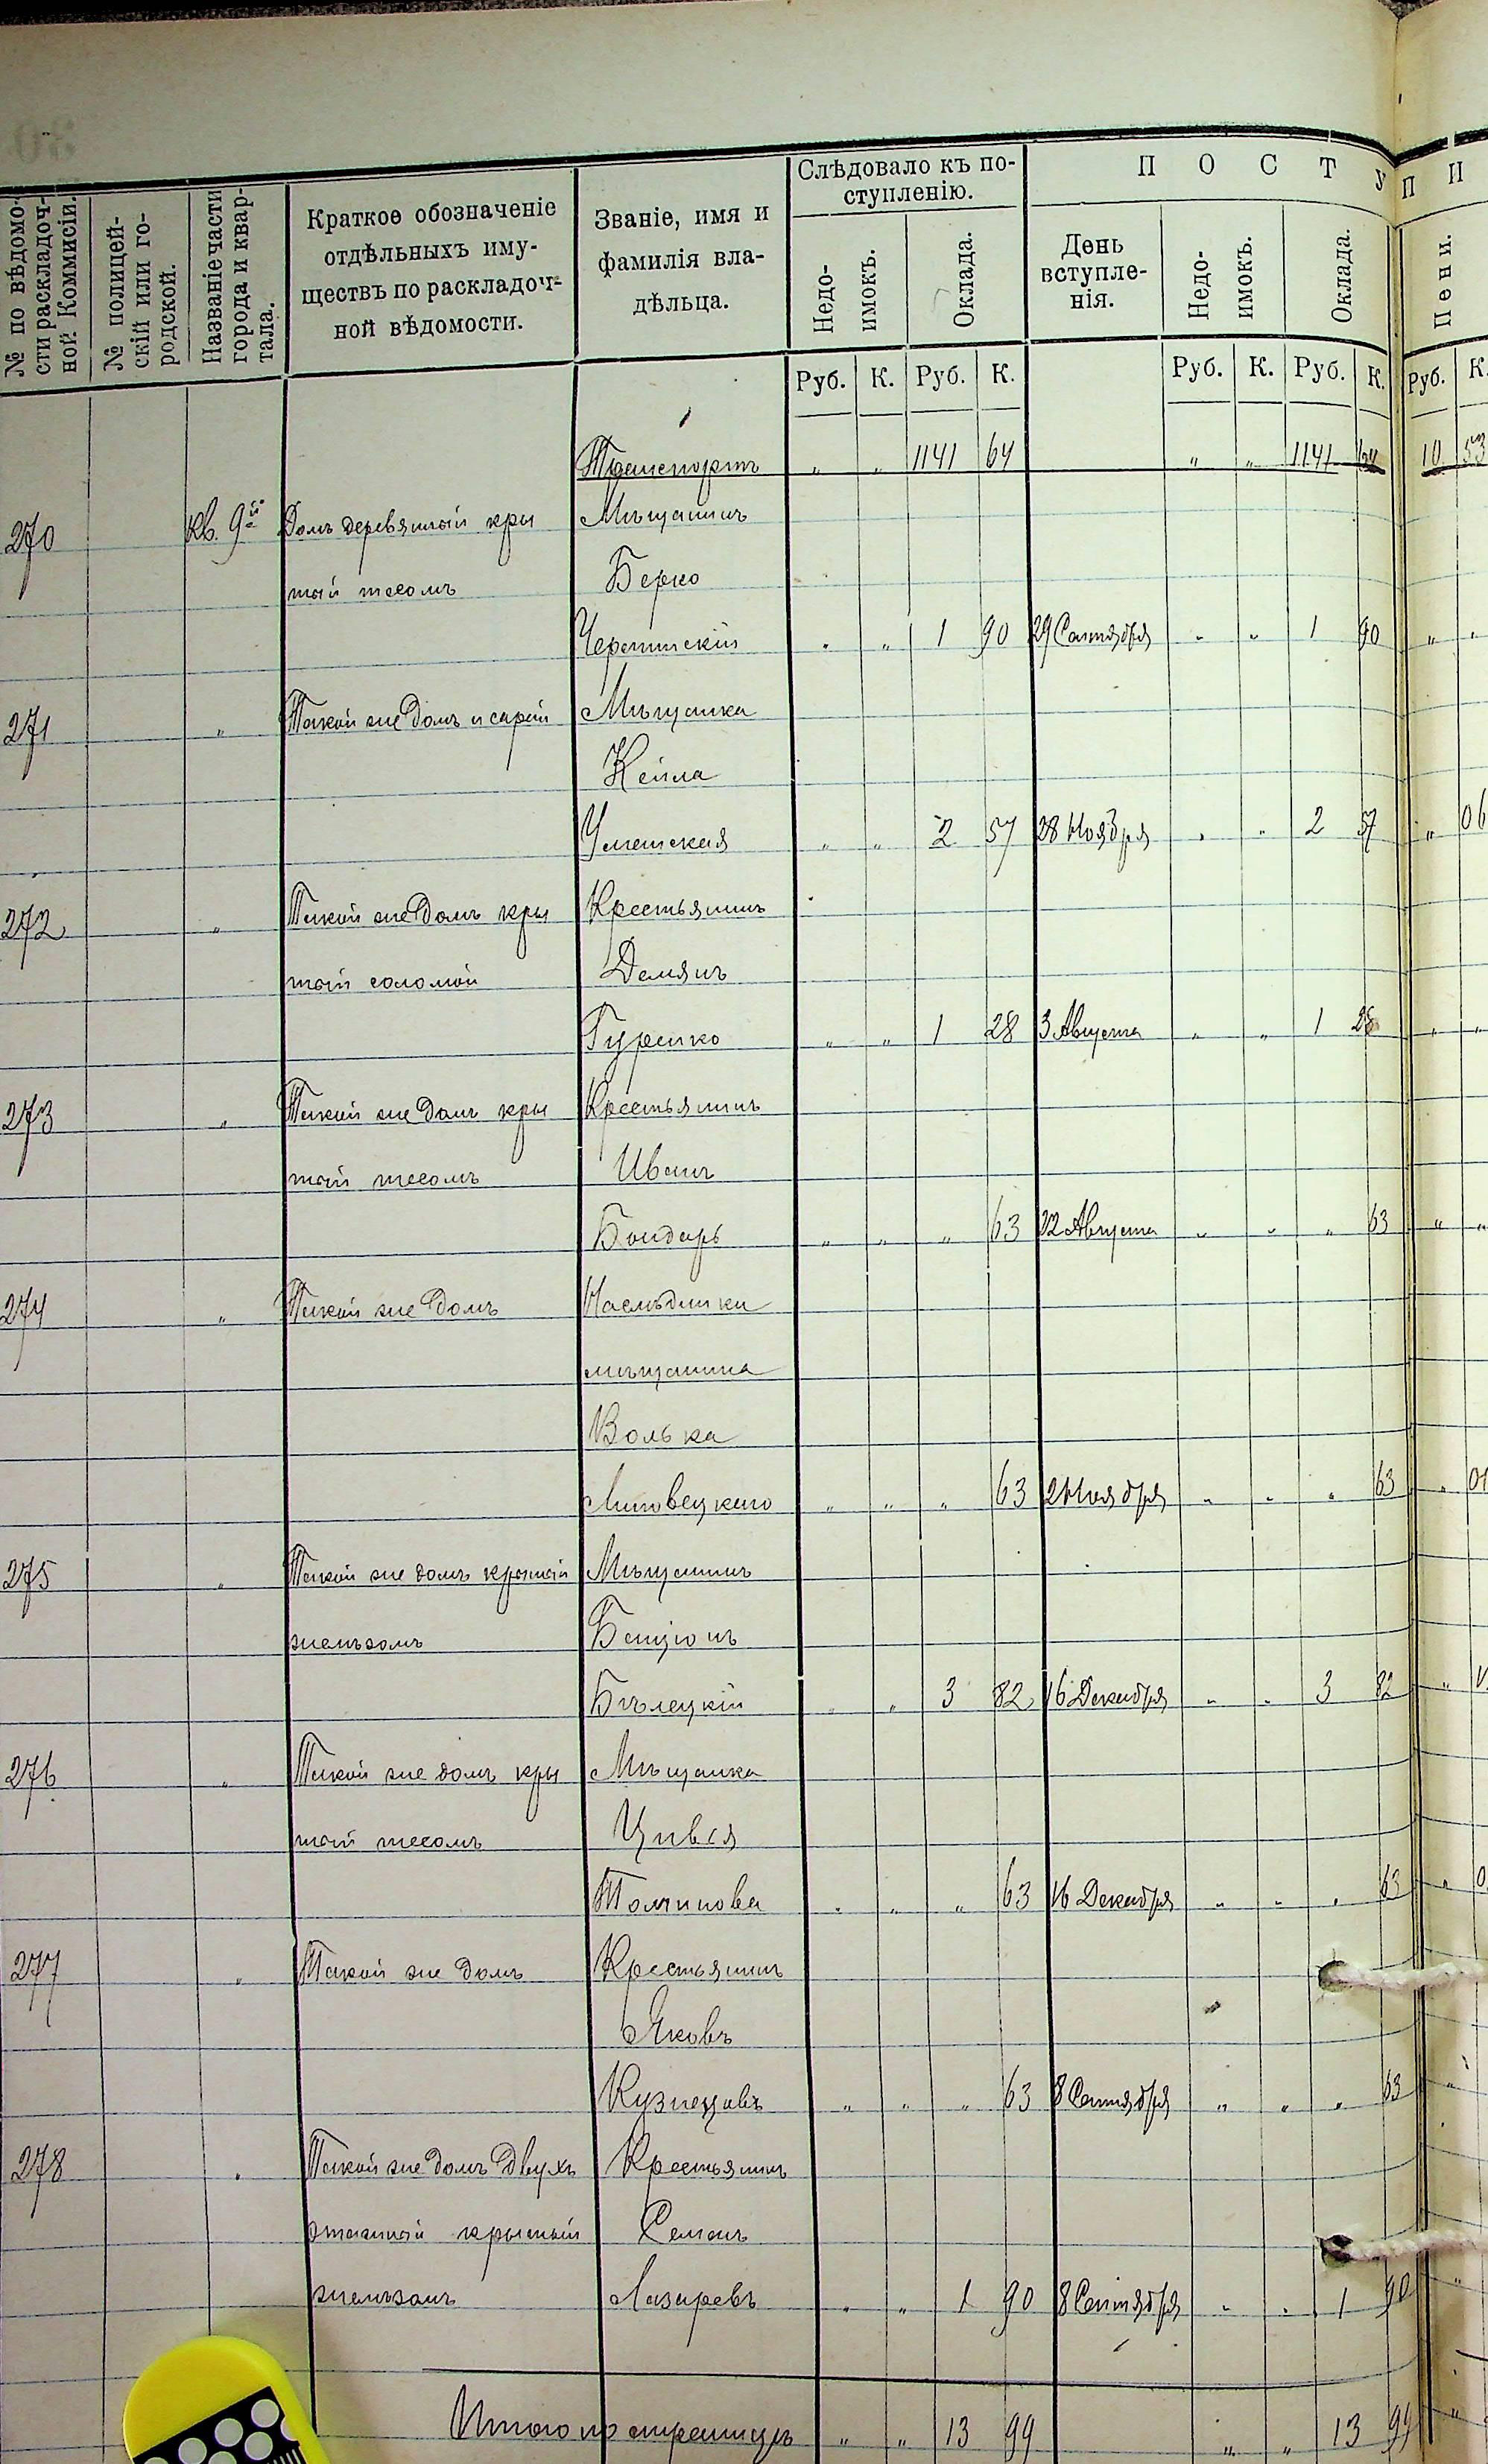 № по вѣдомости раскладочной Коммисіи. | № полицейскій или городской. | Названіе части города и квартала. | Краткое обозначеніе отдѣльныхъ имуществъ по раскладочной вѣдомости. | Званіе, имя и фамилія владѣльца. | Слѣдовало къ поступленію. | П О С Т У П И
Недоимокъ. | Оклада. | День вступленія. | Недоимокъ. | Оклада. | Пени.
Руб. | К. | Руб. | К. | Руб. | К. | Руб. | К. | Руб. | К.
Транспортъ " " 1141 64 " " 1141 64 10 53
270 Кв. 9й Домъ деревянный кры Мѣщанинъ
тый тесомъ Берко
" " 1 90 29 Сентября " " 1 90 " "
271 " Такой же домъ и сарай Мѣщанка
Кейла
Уманская " " 2 57 28 Ноября " " 2 57 " 06
272 " Такой же домъ кры Крестьянинъ
тый соломой Демянъ
Гуренко " " 1 28 3 Августа " " 1 28 " "
273 " Такой же домъ кры Крестьянинъ
тый тесомъ Иванъ
Бондарь " " " 63 22 Августа " " " 63 " "
274 " Такой же домъ Наслѣдники
мѣщанина
Волька
Липовецкаго " " " 63 2 Ноября " " " 63 " 01
275 " Такой же домъ крытый Мѣщанинъ
желѣзомъ Бенціонъ
Бѣлецкій " " 3 82 16 Декабря " " 3 82 "
276 " Такой же домъ кры Мѣщанка
тый тесомъ Цивія
" " " 63 16 Декабря " " " 63 "
277 " Такой же домъ Крестьянинъ
Яковъ
Кузнецовъ " " " 63 8 Сентября " " " 63 "
278 " Такой же домъ двухъ Крестьянинъ
этажный крытый Семенъ
желѣзомъ Лазаревъ " " 1 90 8 Сентября " " 1 90 "
Итого по страницѣ " " 13 99 " " 13 99 "